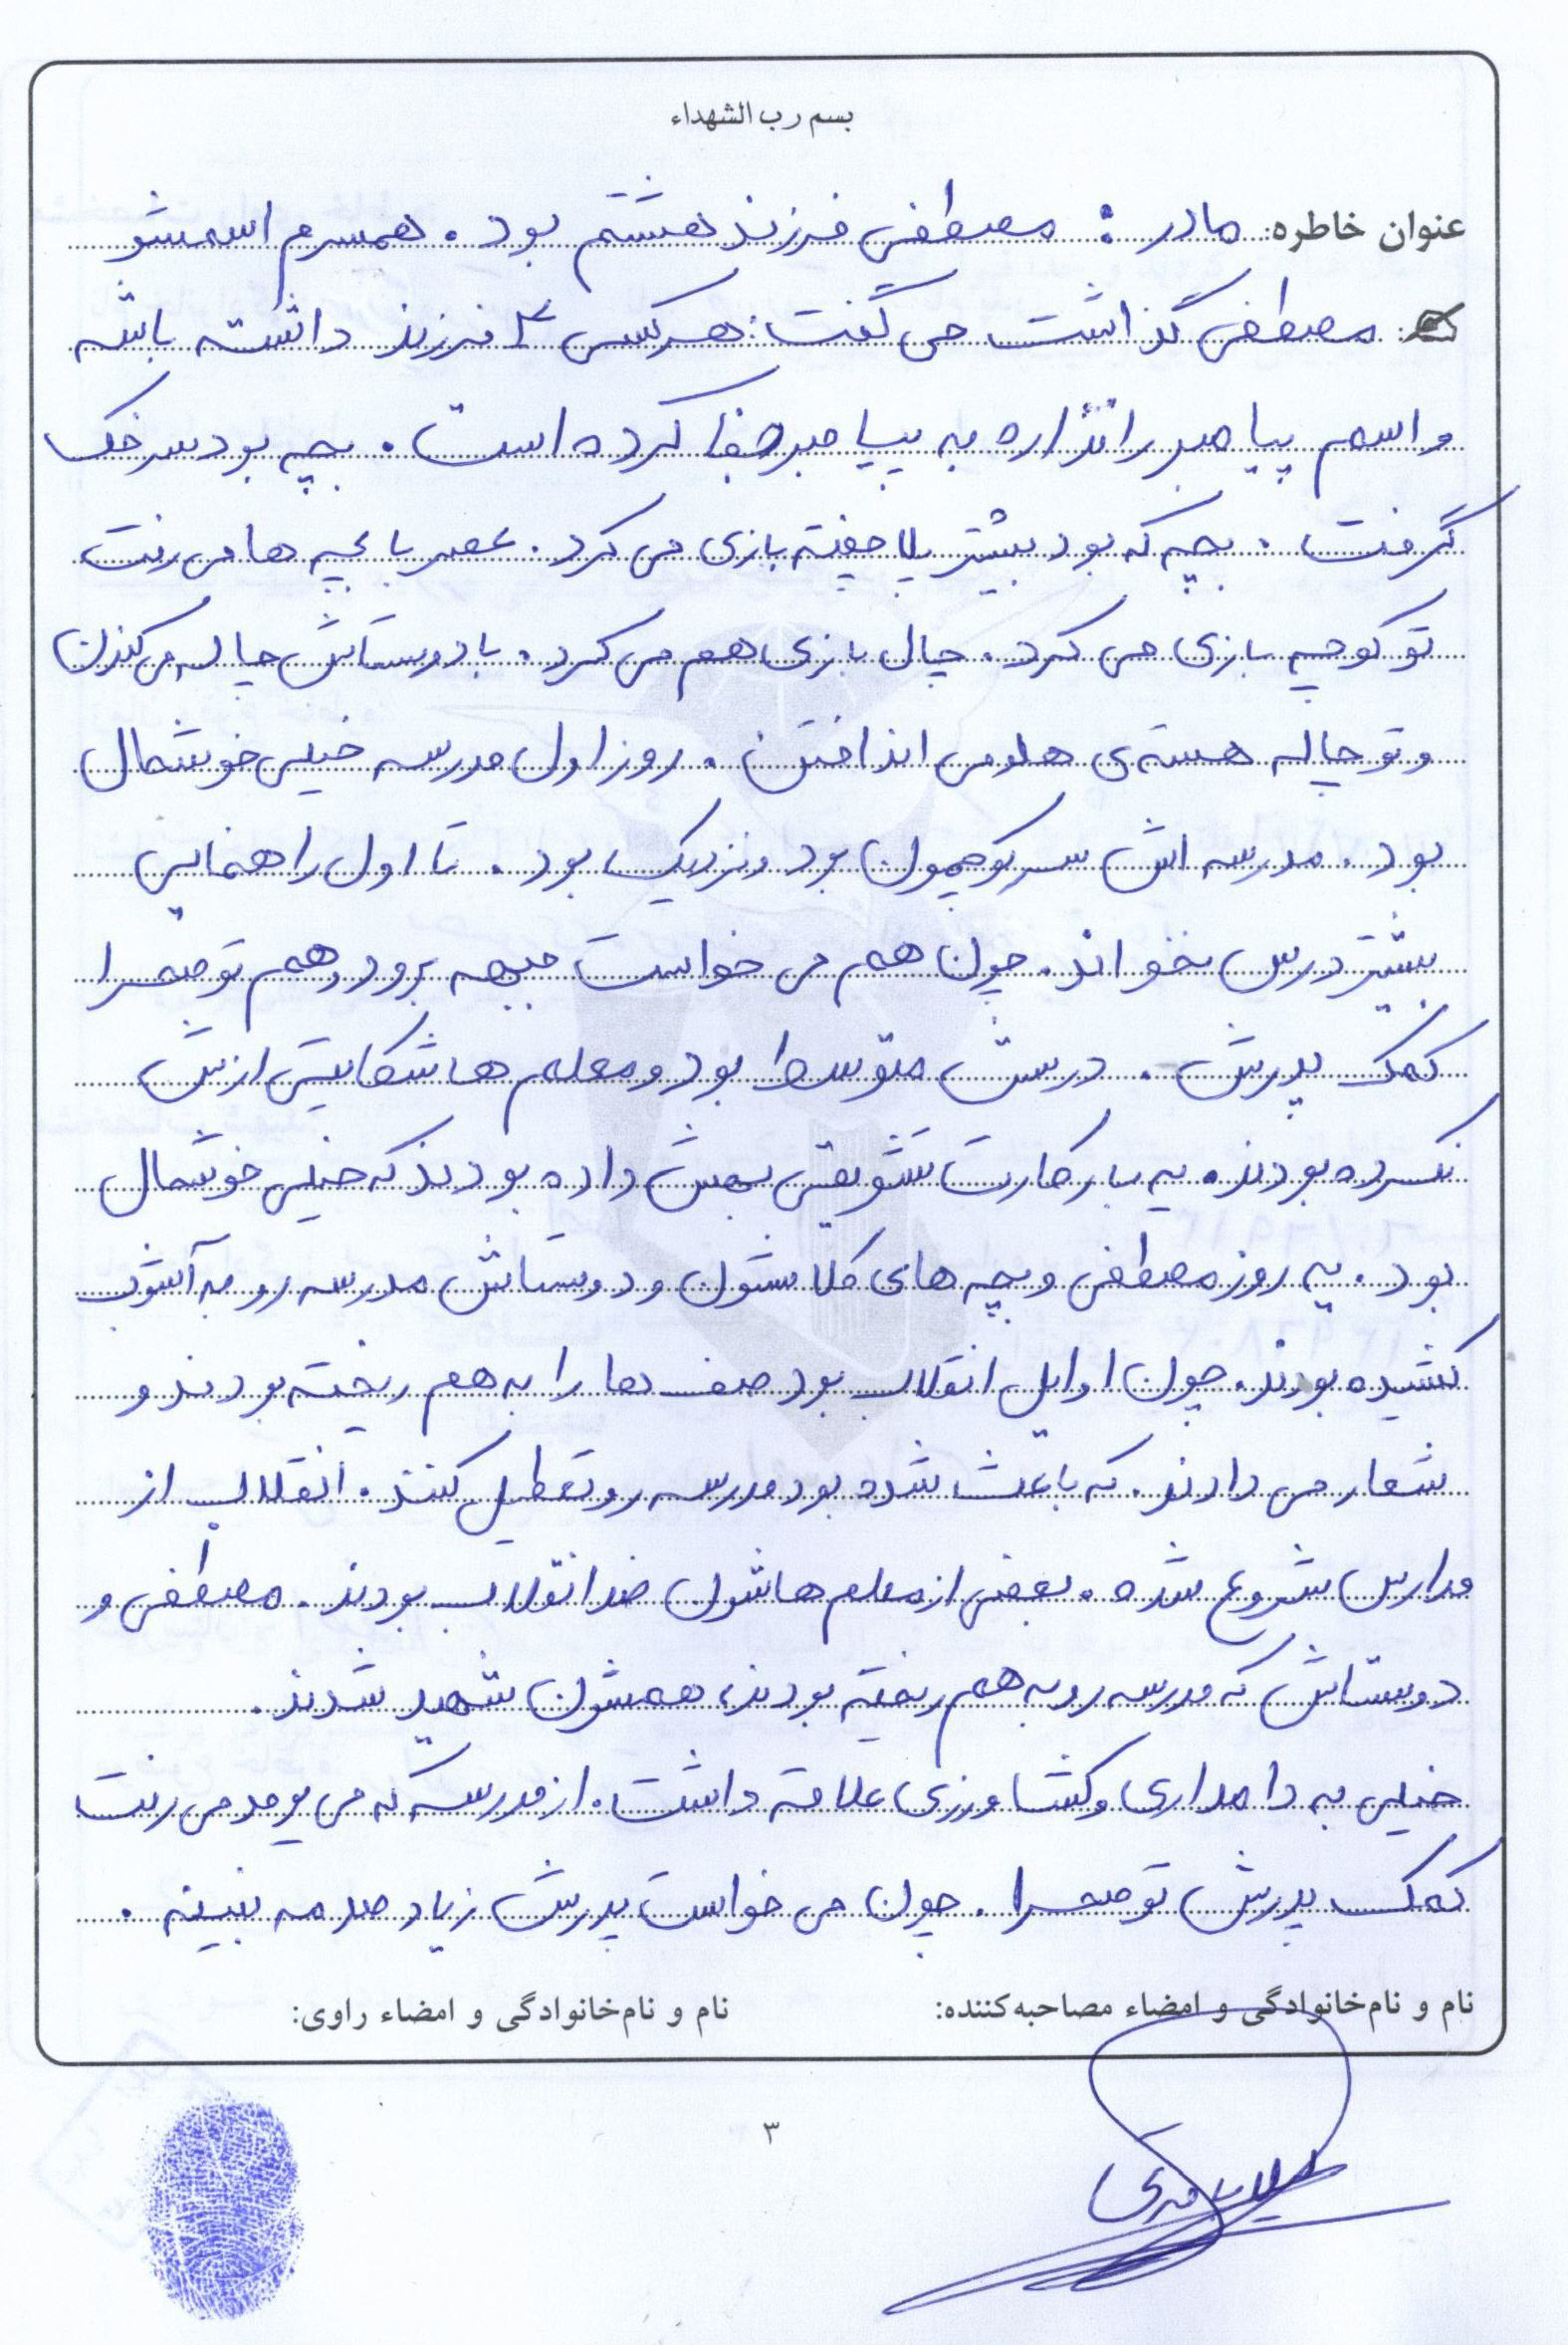 بسم رب الشهداء
عنوان خاطره: مادر : مصطفی فرزند هشتم بود . همسرم اسمشو
مصطفی گذاشت می گفت : هرکسی ۴ فرزند داشته باشه
و اسم پیامبر را نذاره به پیامبر جفا کرده است . بچه بود سرخک
گرفت . بچه که بود بیشتر با جفیته بازی می کرد . عصر با بچه ها می رفت
تو کوچه بازی می کرد . چال بازی هم می کرد . با دوستاش چاله می کندن
و تو چاله هسته ی هلو می انداختن . روز اول مدرسه خیلی خوشحال
بود . مدرسه اش سر کوچمون بود و نزدیک بود . تا اول راهنمایی
بیشتر درس نخواند . چون هم می خواست جبهه برود و هم تو صحرا
کمک پدرش . درسش متوسط بود و معلم ها شکایتی ازش
نکرده بودند . یه بار کارت تشویقی بهش داده بودند که خیلی خوشحال
بود . یه روز مصطفی و بچه های کلاسشون و دوستاش مدرسه رو به آشوب
کشیده بودند . چون اوایل انقلاب بود صف ها را به هم ریخته بودند و
شعار می دادند . که باعث شده بود مدرسه رو تعطیل کنند . انقلاب از
مدارس شروع شده . بعضی از معلم هاشون ضد انقلاب بودند . مصطفی و
دوستاش که مدرسه رو به هم ریخته بودند ، همشون شهید شدند .
خیلی به دامداری و کشاورزی علاقه داشت . از مدرسه که می یومد می رفت
کمک پدرش تو صحرا . چون می خواست پدرش زیاد صدمه نبینه .
نام و نام‌خانوادگی و امضاء مصاحبه‌کننده: نام و نام‌خانوادگی و امضاء راوی:
۳